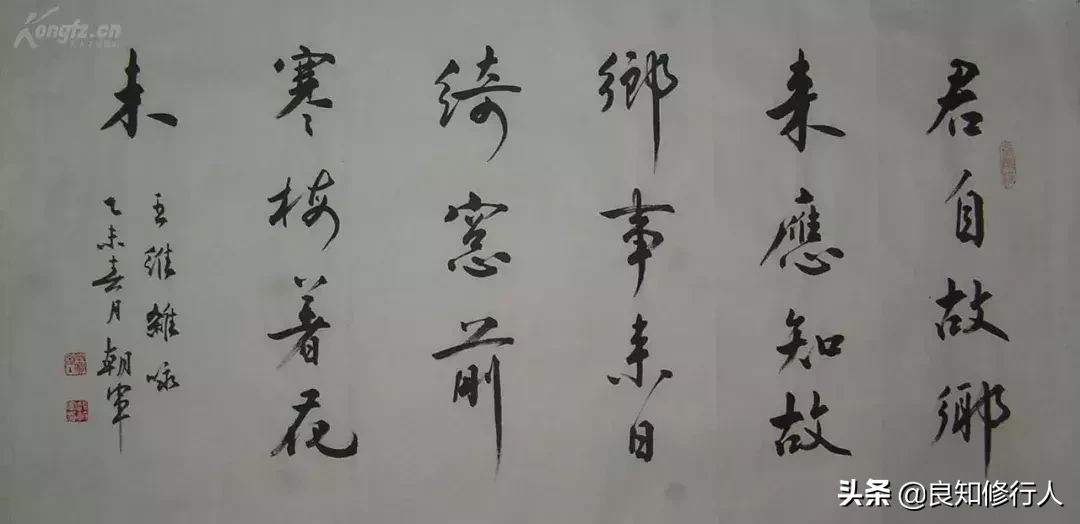 君自故鄉
来應知故
鄉事来日
綺窓前
寒梅著花
未
王維雜咏
乙未春月朝軍
Kongfz.cn
头条 @良知修行人